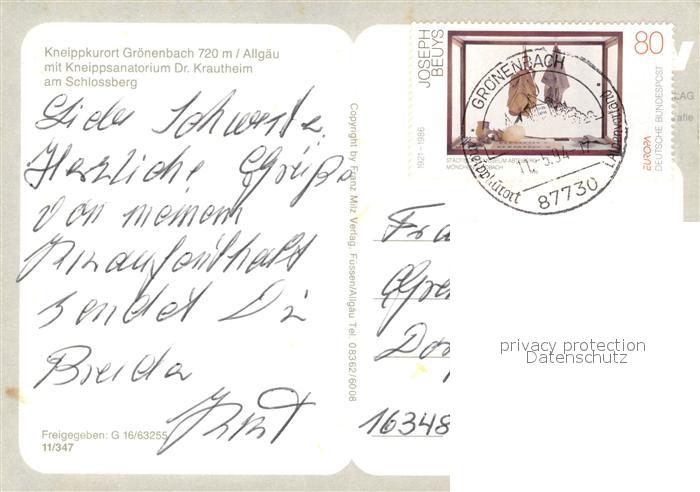 Kneippkurort Grönenbach 720 m / Allgäu
mit Kneippsanatorium Dr. Krautheim
am Schlossberg
Liebe Schwester,
Herzliche Grüße
von meinem
Kuraufenthalt
sendet Dir
Bruder
Kurt
Freigegeben: G 16/63255
11/347
Copyright by Franz Milz Verlag, Füssen/Allgäu Tel. 08362/6008
JOSEPH
BEUYS
1921-1986
80
EUROPA
DEUTSCHE BUNDESPOST
MÖNCHENGLADBACH
GRÖNENBACH
Kneippkurort
87730
Fra
Dor
16348
privacy protection
Datenschutz
LAG
afie